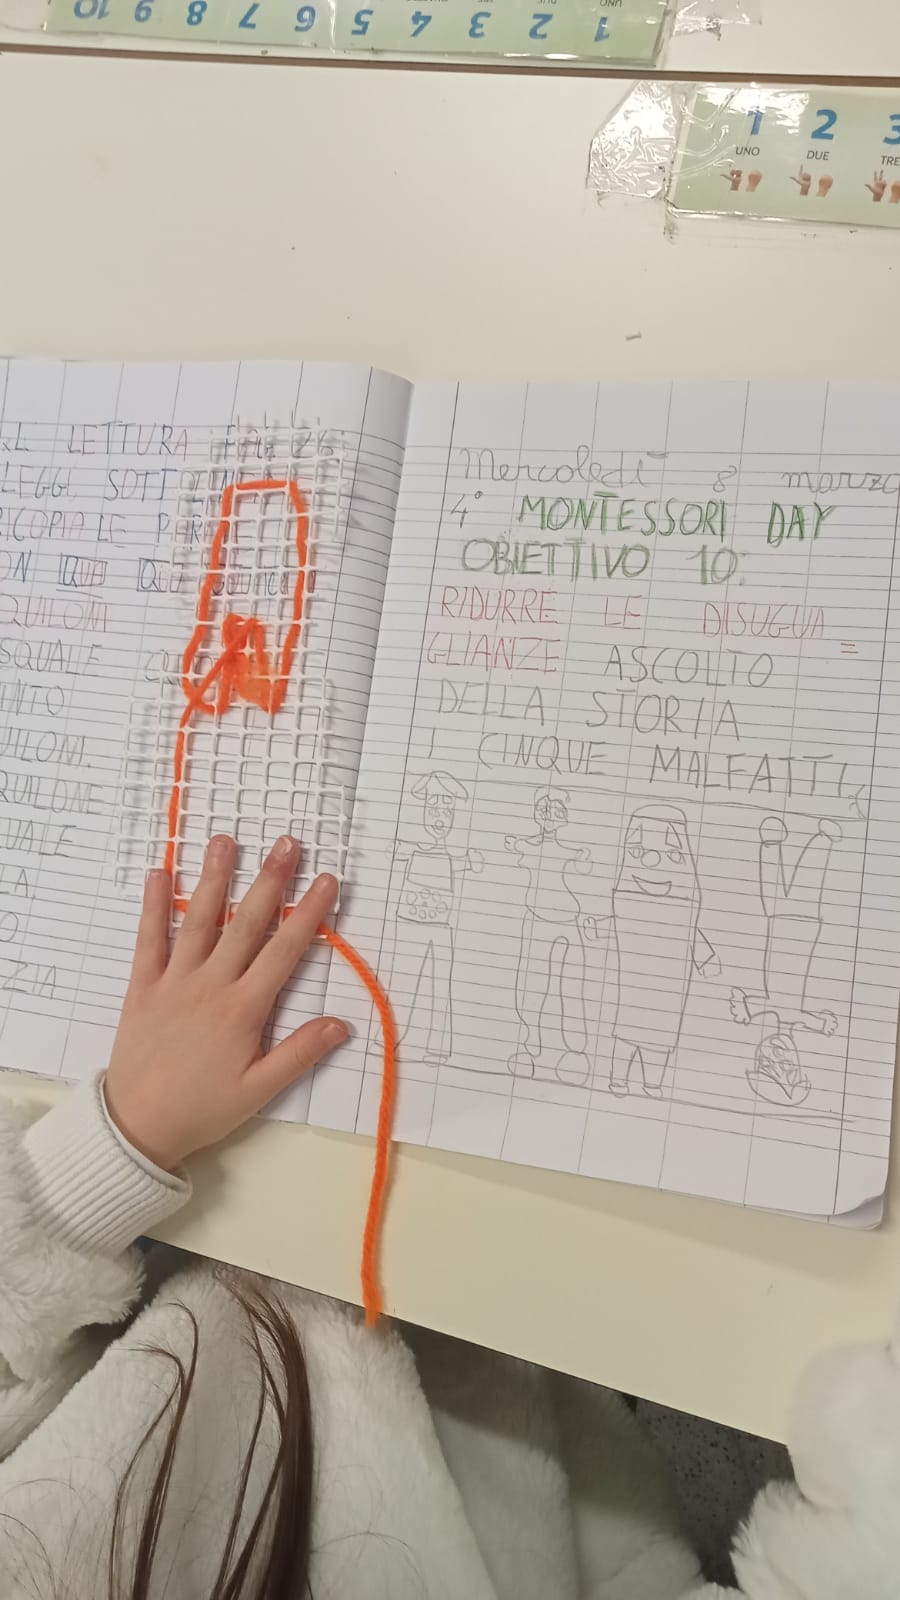 10 9 8 7 6 5 4 3 2 1
UNO
1 2 3
UNO DUE TRE
LETTURA
LEGGI SOTT
RICOPIA LE PAR
ON QUA QUO
QUILONI
SQUALE
UILONI.
QUILONE
UALE
LA.
O
ZIA
Mercoledì 8 marzo
4° MONTESSORI DAY
OBIETTIVO 10:
RIDURRE LE DISUGUA=
GLIANZE ASCOLTO
DELLA STORIA
I CINQUE MALFATTI